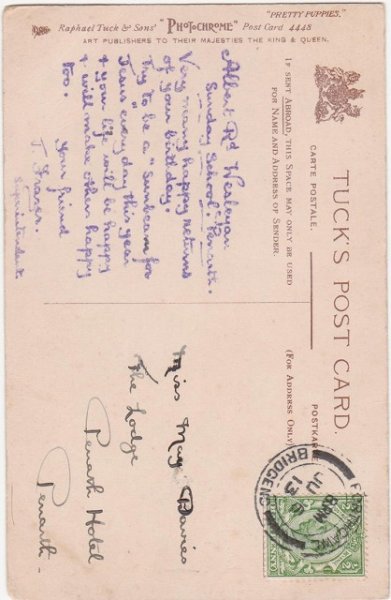 "PRETTY PUPPIES."
Raphael Tuck & Sons' "PHOTOCHROME" Post Card 4448
ART PUBLISHERS TO THEIR MAJESTIES THE KING & QUEEN.
TUCK'S POST CARD.
CARTE POSTALE.
POSTKARTE
IF SENT ABROAD, THIS SPACE MAY ONLY BE USED
FOR NAME AND ADDRESS OF SENDER.
(FOR ADDRESS ONLY)
Albert Rd Wesleyan
Sunday School. Penarth.
Very many happy returns
of your birthday.
Try to be a "Sunbeam for
Jesus" every day this year
& your life will be happy
& will make other happy
too.
Your friend
T. Franks.
Superintendent.
Miss May Davies
The Lodge
Penarth Hotel
Penarth
BRIDGEND
8 PM
JU
13